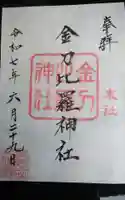 奉拝
本社
金刀比羅神社
金刀比羅神社
令和七年六月二十九日